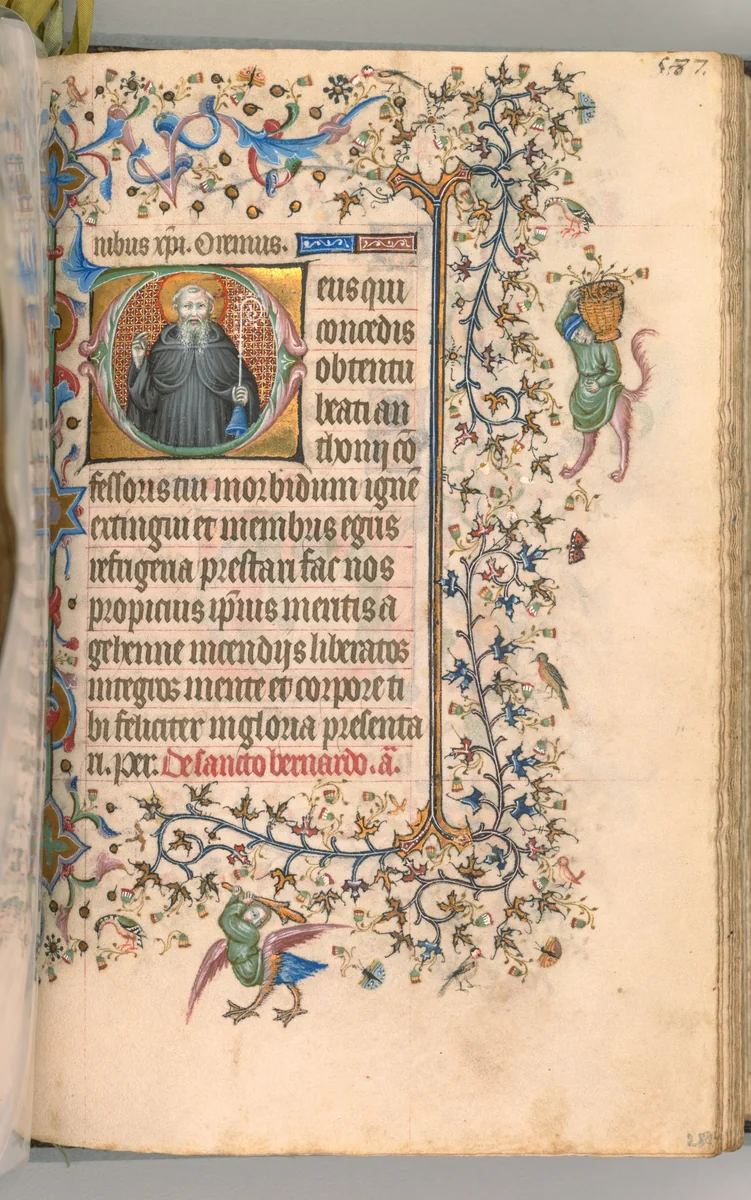 nibus xp̄i. Oremus.
eus qui
concedis
obtentu
beati an
thonij cō
fessoris tui morbidum ignē
extingui et membris egris
refrigeria prestari fac nos
propicius ip̄ius meritis a
gehenne incendijs liberatos
integros mente et corpore ti
bi feliciter in gloria presenta
ri. Per. De sancto bernardo. a̅.